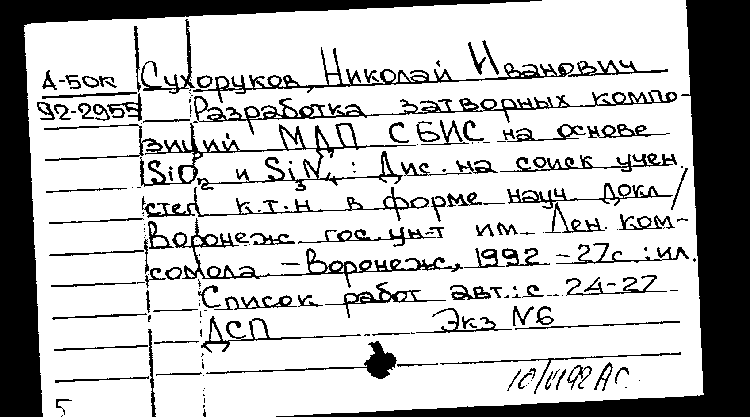 А-50к Сухоруков, Николай Иванович
92-2955 Разработка затворных компо-
зиций МДП СБИС на основе
SiO₂ и Si₃N₄ : Дис. на соиск учен.
степ к.т.н. в форме науч. докл /
Воронеж. гос. ун-т им. Лен. ком-
сомола. – Воронеж, 1992 – 27с. : ил.
Список работ авт.: с 24-27
ДСП Экз N6
5